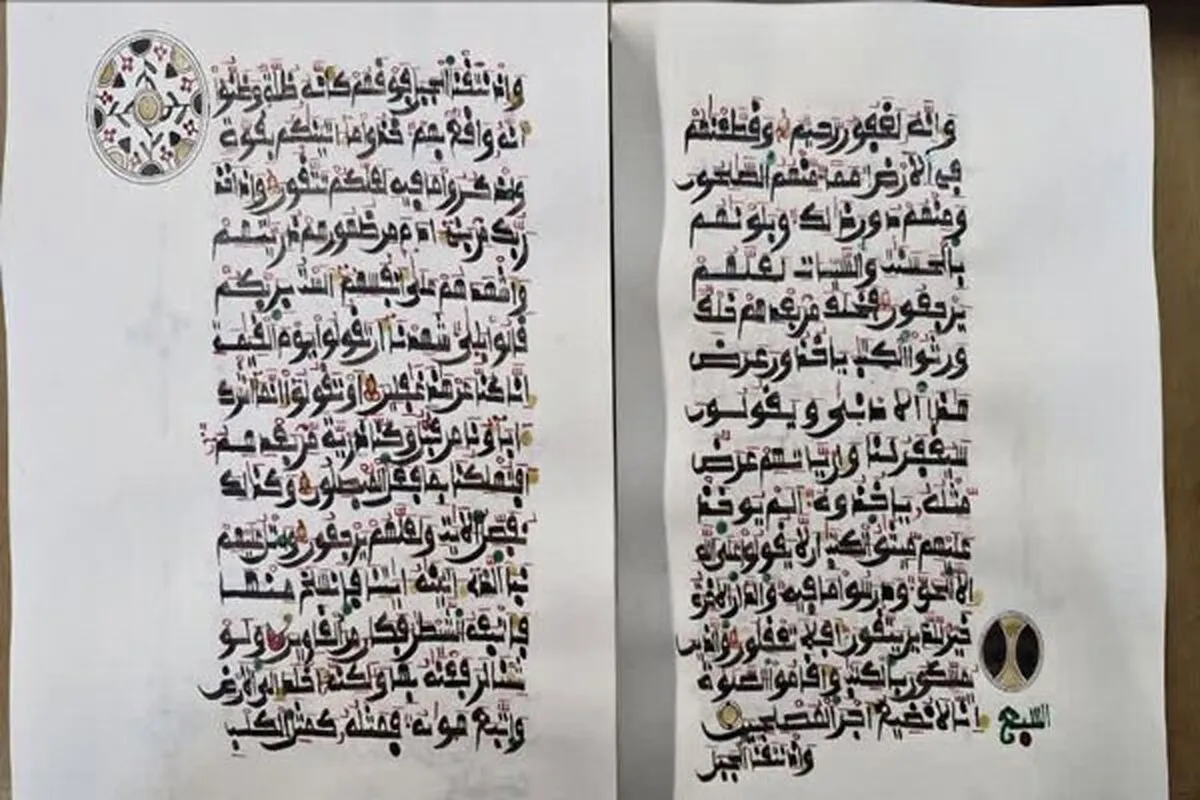 وانه لغفور رحيم وقطعنهم
في الارض امما منهم الصلحون
ومنهم دون ذلك وبلونهم
بالحسنت والسيات لعلهم
يرجعون فخلف من بعدهم خلف
ورثوا الكتب ياخذون عرض
هذا الادنى ويقولون
سيغفر لنا وان ياتهم عرض
مثله ياخذوه الم يوخذ
عليهم ميثق الكتب ان لا يقولوا على الله
الا الحق ودرسوا ما فيه والدار الاخرة
خير للذين يتقون افلا تعقلون والذين
يمسكون بالكتب واقاموا الصلوة
انا لا نضيع اجر المصلحين
السبع
واذ نتقنا الجبل
واذ نتقنا الجبل فوقهم كانه ظلة وظنوا
انه واقع بهم خذوا ما اتينكم بقوة
واذكروا ما فيه لعلكم تتقون واذ اخذ
ربك من بني ادم من ظهورهم ذريتهم
واشهدهم على انفسهم الست بربكم
قالوا بلى شهدنا ان تقولوا يوم القيمة
انا كنا عن هذا غفلين او تقولوا انما اشرك
اباونا من قبل وكنا ذرية من بعدهم
افتهلكنا بما فعل المبطلون وكذلك
نفصل الايت ولعلهم يرجعون واتل عليهم
نبا الذي اتينه ايتنا فانسلخ منها
فاتبعه الشيطن فكان من الغاوين ولو
شئنا لرفعنه بها ولكنه اخلد الى الارض
واتبع هويه فمثله كمثل الكلب